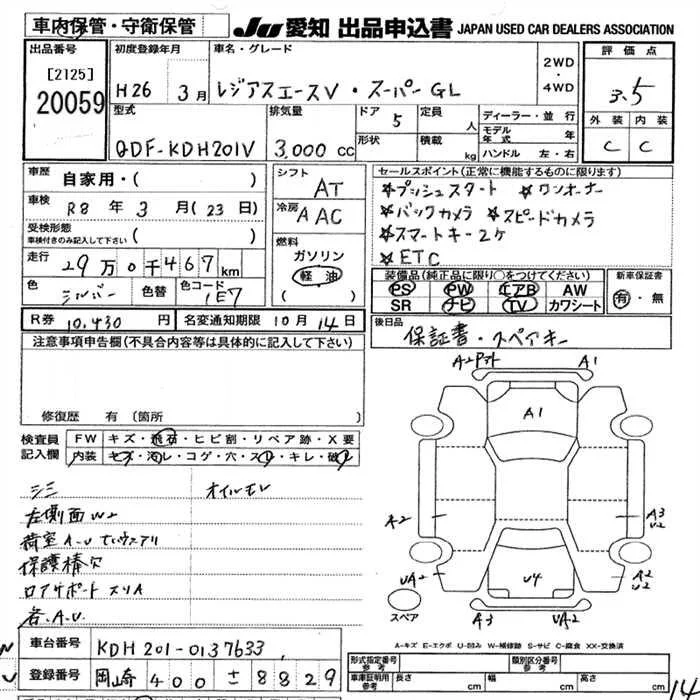 車内保管・守衛保管
JU 愛知 出品申込書 JAPAN USED CAR DEALERS ASSOCIATION
出品番号
[2125]
20059
初度登録年月
H26 3月
車名・グレード
レジアスエースV・スーパーGL
2WD
・
4WD
評価点
3.5
外装 内装
C C
型式
QDF-KDH201V
排気量
3,000 cc
ドア
5
形状
定員
人
積載
kg
ディーラー・並行
モデル年式 年
ハンドル 左・右
車歴
自家用・( )
車検
R8年3月(23日)
受検形態
車検付きのみ記入して下さい ( )
走行
29万0千467km
色
シルバー
色替
色コード
1E7
シフト
AT
冷房
AAC
燃料
ガソリン
軽油
( )
セールスポイント(正常に機能するものに限ります)
☆プッシュスタート ☆ワンオーナー
☆バックカメラ ☆スピードカメラ
☆スマートキー2ケ
☆ETC
装備品(純正品に限り○をつけてください)
PS PW エアB AW
SR ナビ TV カワシート
新車保証書
有・無
R券 10,430円
名変通知期限 10月14日
後日品
保証書・スペアキー
注意事項申告欄(不具合内容等は具体的に記入して下さい)
修復歴 有 〔箇所
検査員
記入欄
FW キズ・飛石・ヒビ割・リペア跡・X要
内装 キズ・汚レ・コゲ・穴・スレ・キレ・破レ
シミ オイルモレ
左側面W2
荷室A-U
保護棒欠
ロアサポートスリA
各A.U
A1
A1
A2
A3
U2
UA2
A2
U2
U4
スペア
A3
UA2
A-キズ E-エクボ U-凹み W-補修跡 S-サビ C-腐食 XX-交換済
車台番号 KDH201-0137633
登録番号 岡崎 400 ± 8829
形式指定番号
参考
類別区分番号
参考
車庫証明用
参考
長さ cm 幅 cm 高さ cm
14